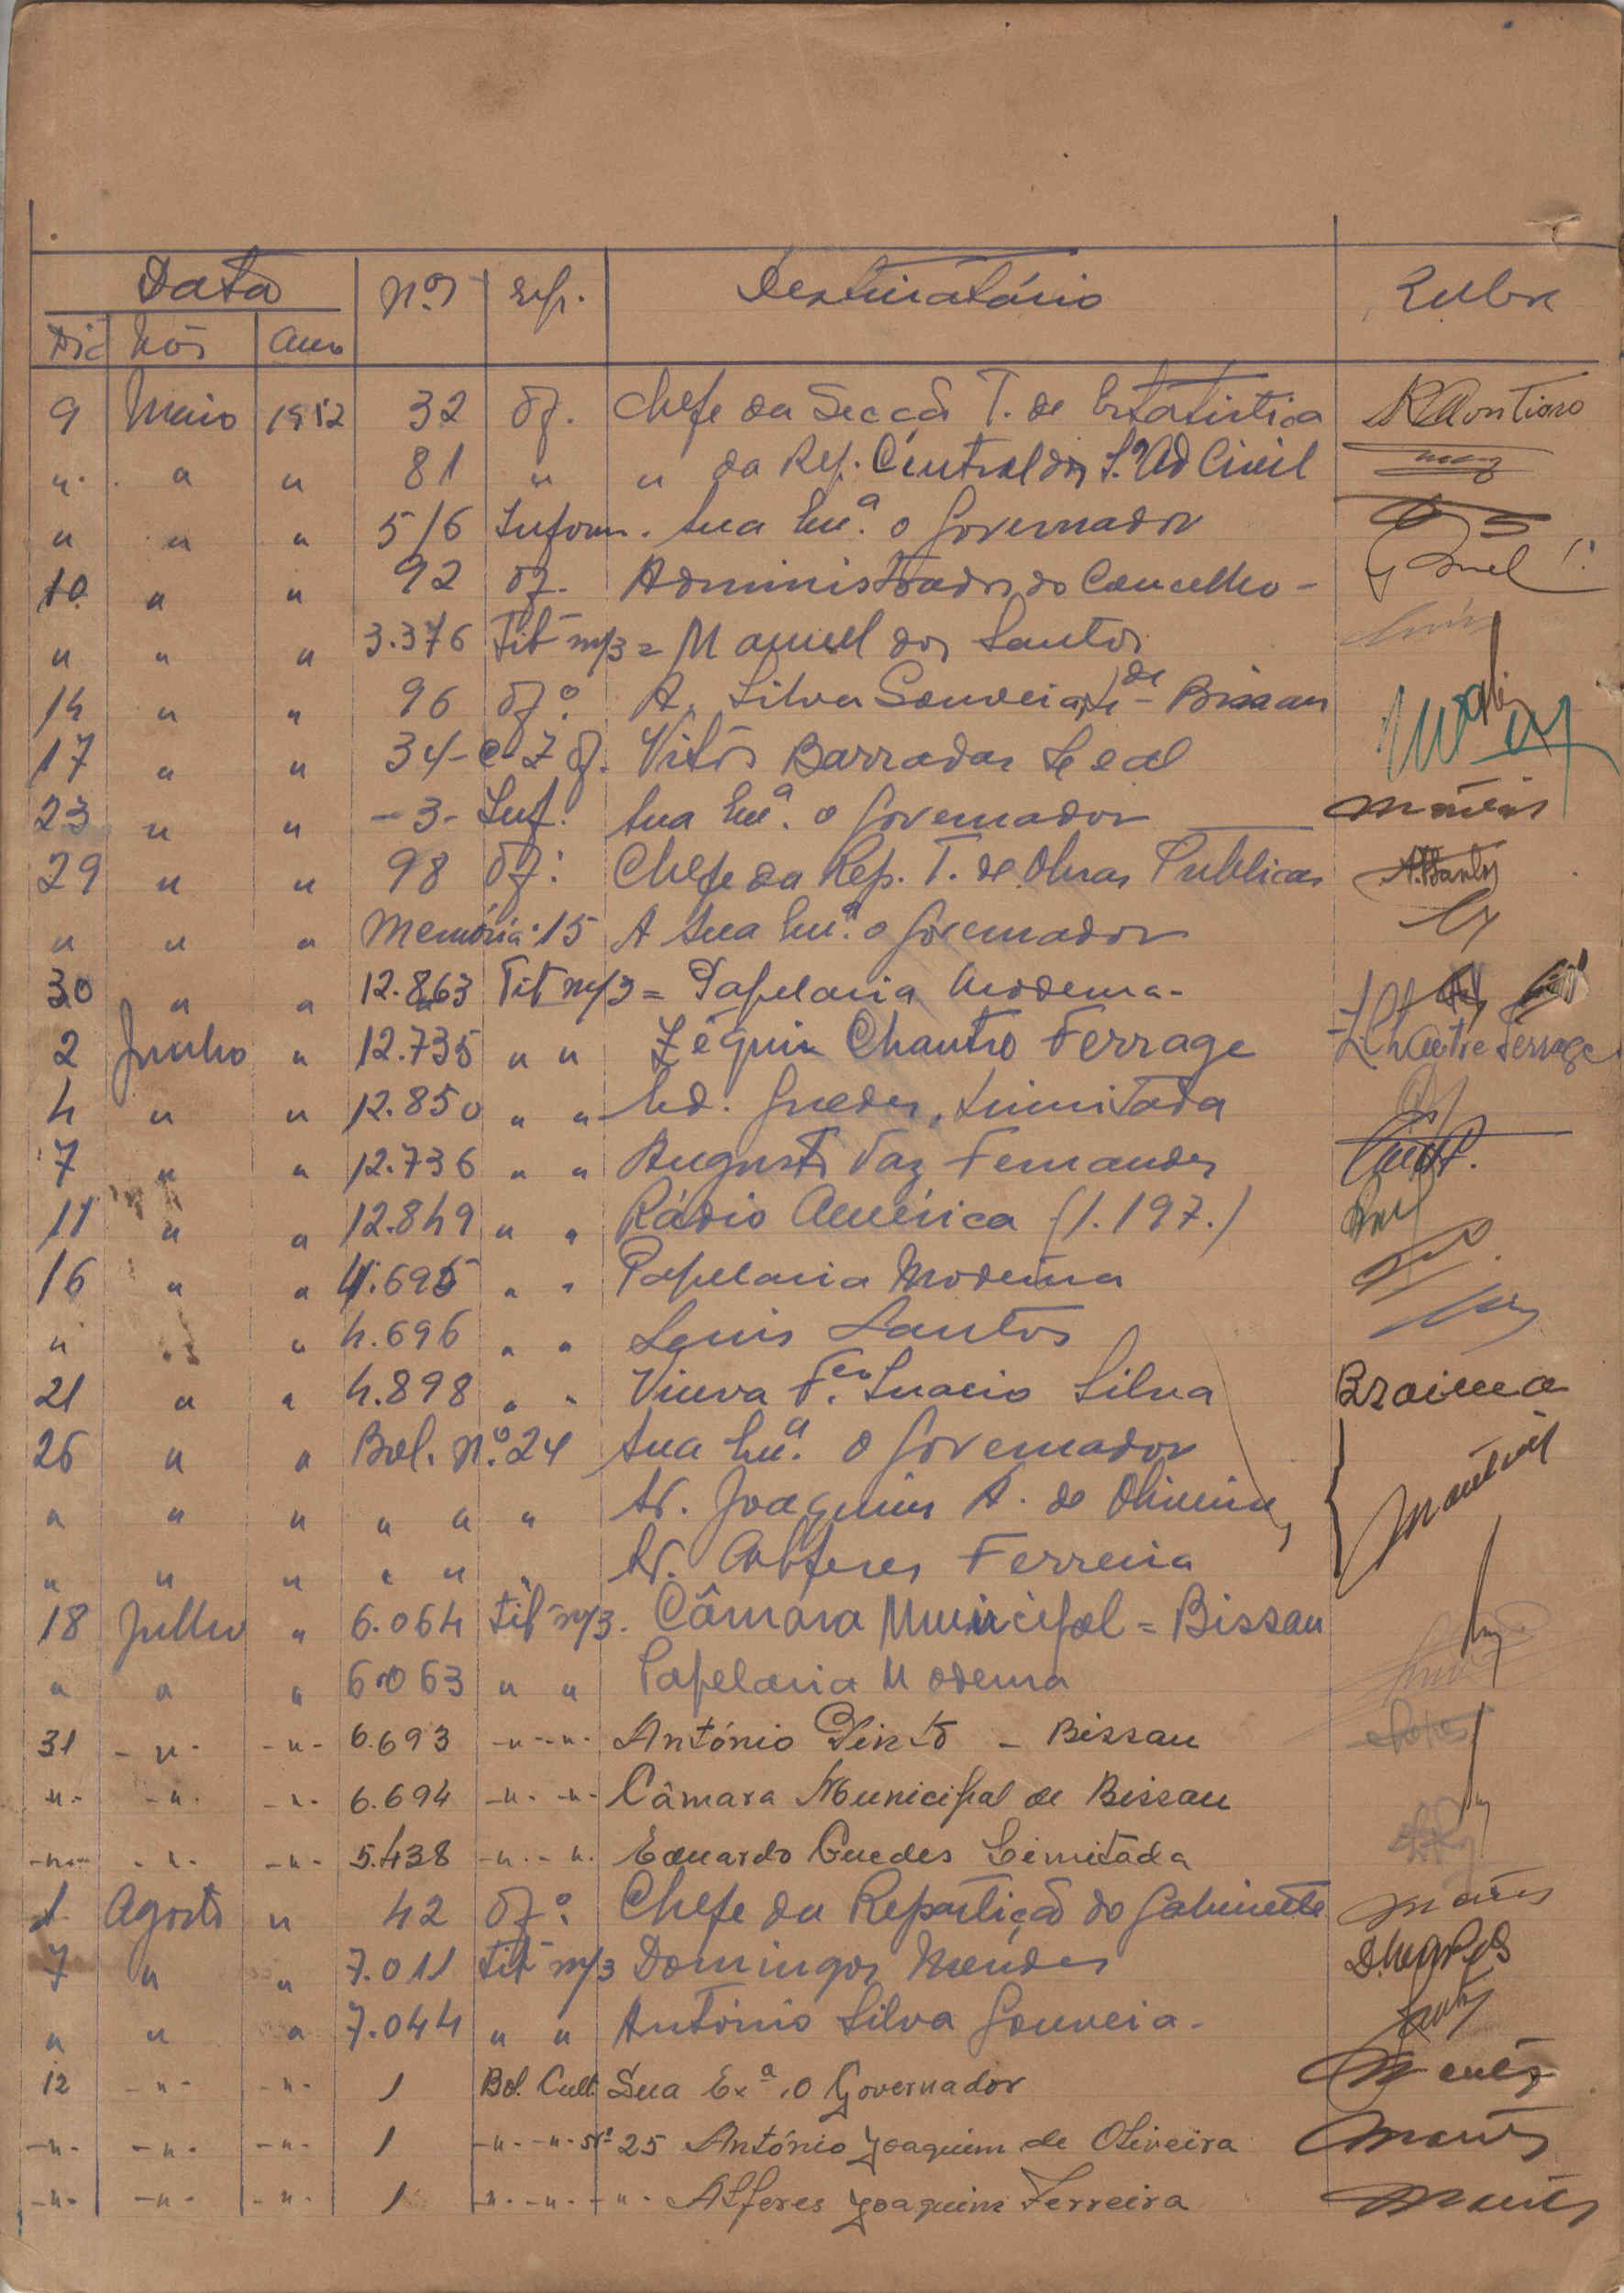 Data Nº Esp. Destinatário Rubr
Dia Mês Ano
9 Maio 1952 32 Of. Chefe da Secção T. de Estatística
" " " 81 " " da Rep. Central dos S. Ad Civil
" " " 516 Inform. Sua Exª. o Governador
10 " " 92 Of. Administrador do Concelho -
" " " 3.376 Tit m/3 = Manuel dos Santos
14 " " 96 Ofº. A. Silva Gouveia, de - Bissau
17 " " 34-C-7 Of. Vitor Barradas Leal
23 " " -3- Inf. Sua Exª. o Governador
29 " " 98 Of: Chefe da Rep. T. de Obras Publicas A. Santos
" " " Memória: 15 A Sua Exª. o Governador
30 " " 12.863 Tit m/3 = Papelaria Moderna -
2 Junho " 12.735 " " Zéguir Chautro Ferrage
4 " " 12.850 " " Ed. Guedes, Limitada
7 " " 12.736 " " Augusto Vaz Fernandes
11 " " 12.849 " " Rádio América (1.197.)
16 " " 4.695 " " Papelaria Moderna
" " " 4.696 " " Luis Santos
21 " " 4.898 " " Viuva F.co Inacio Silva Braima
26 " " Bol. Nº. 24 Sua Exª. o Governador
" " " " " " Sr. Joaquim A. de Oliveira
" " " " " " Sr. Alferes Ferreira
18 Julho " 6.064 Tit m/3. Câmara Municipal = Bissau
" " " 6.063 " " Papelaria Moderna
31 -"- -"- 6.693 -"- -"- António Pinto - Bissau
-"- -"- -"- 6.694 -"- -"- Câmara Municipal de Bissau
-"- -"- -"- 5.438 -"- -"- Eduardo Guedes Limitada
1 Agosto " 42 Ofº. Chefe da Repartição do Gabinete
7 " " 7.011 Tit m/3 Domingos Mendes
" " " 7.044 " " António Silva Gouveia -
12 -"- -"- 1 Bol. Cult. Sua Exª. o Governador
-"- -"- -"- 1 -"- -"- Nº 25 António Joaquim de Oliveira
-"- -"- -"- 1 -"- -"- -"- Alferes Joaquim Ferreira